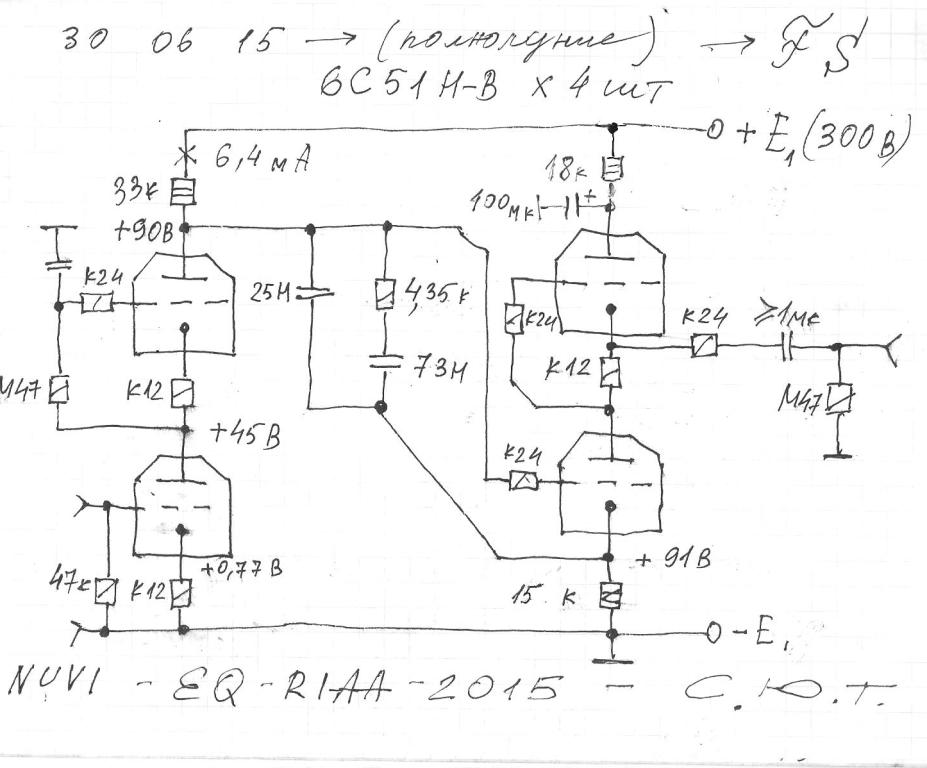 30 06 15 → (полнолуние) → FS
6С51Н-В х 4 шт
+E1 (300В)
6,4 мА
18к
33к
100мк
+
+90В
К24
25Н
4,35к
К24
К24
≥1мк
73Н
М47
К12
К12
М47
+45В
К24
+0,77В
+91В
47к
К12
15 к
-E1
NUVI - EQ-RIAA-2015 - С.Ю.Т.